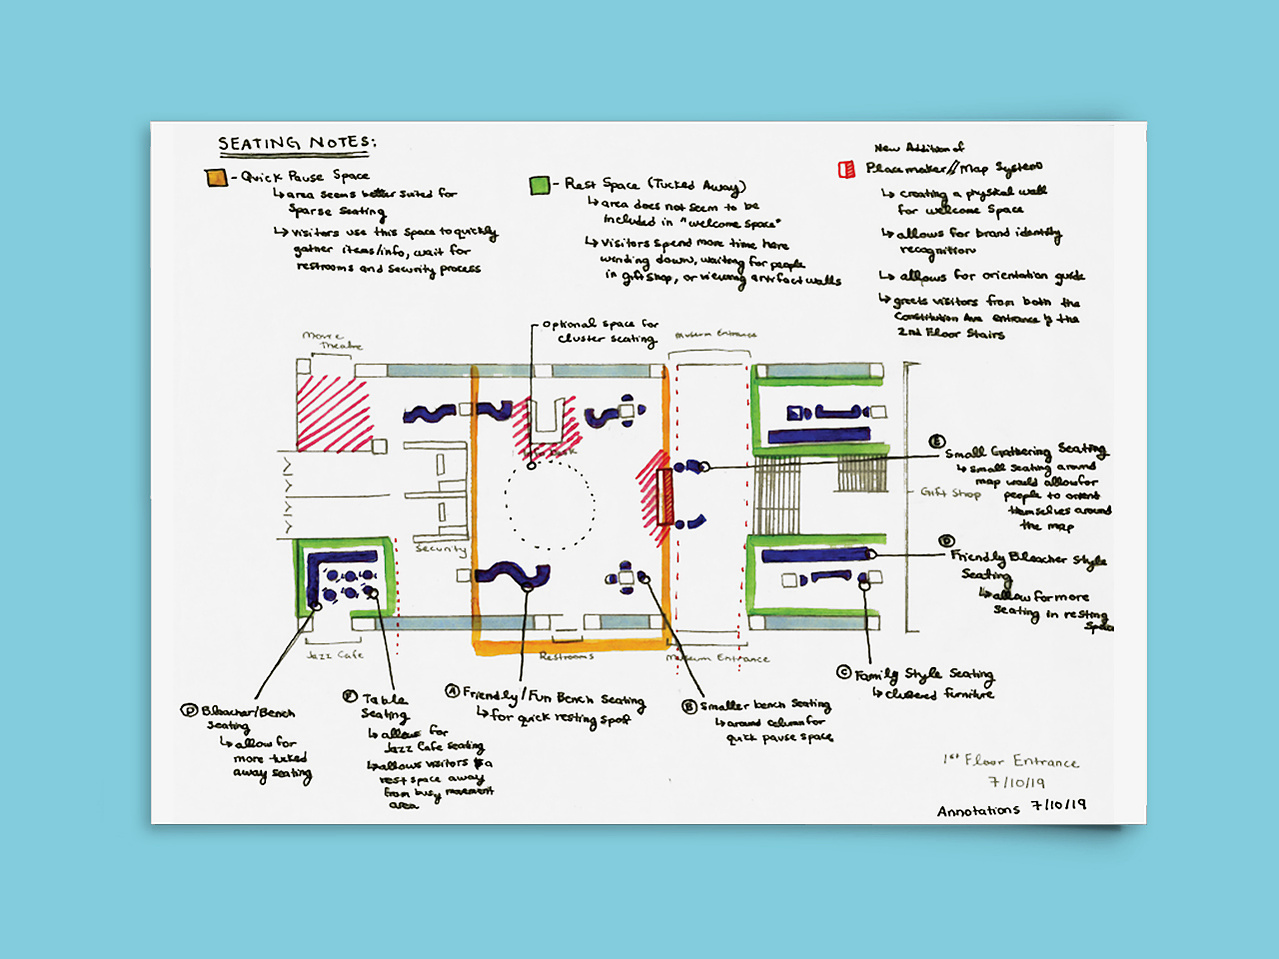 SEATING NOTES:
- Quick Pause Space
↳ area seems better suited for
sparse seating
↳ visitors use this space to quickly
gather items/info, wait for
restrooms and security process
- Rest Space (Tucked Away)
↳ area does not seem to be
included in "welcome space"
↳ visitors spend more time here
winding down, waiting for people
in gift shop, or viewing artifact walls
New Addition of
Placemaker // Map System
↳ creating a physical wall
for welcome space
↳ allows for brand identity
recognition
↳ allows for orientation guide
↳ greets visitors from both the
Constitution Ave entrance & the
2nd Floor Stairs
Movie
Theatre
optional space for
cluster seating
Museum Entrance
Security
Gift Shop
Jazz Cafe
Restrooms
Museum Entrance
E Small Gathering Seating
↳ small seating around
map would allow for
people to orient
themselves around
the map
D Friendly Bleacher Style
Seating
↳ allow for more
seating in resting
space
C Family Style Seating
↳ clustered furniture
D Bleacher/Bench
Seating
↳ allow for
more tucked
away seating
F Table
Seating
↳ allows for
Jazz Cafe seating
↳ allows visitors a
rest space away
from busy movement
area
A Friendly/Fun Bench Seating
↳ for quick resting spot
B Smaller bench seating
↳ around column for
quick pause space
1st Floor Entrance
7/10/19
Annotations 7/10/19